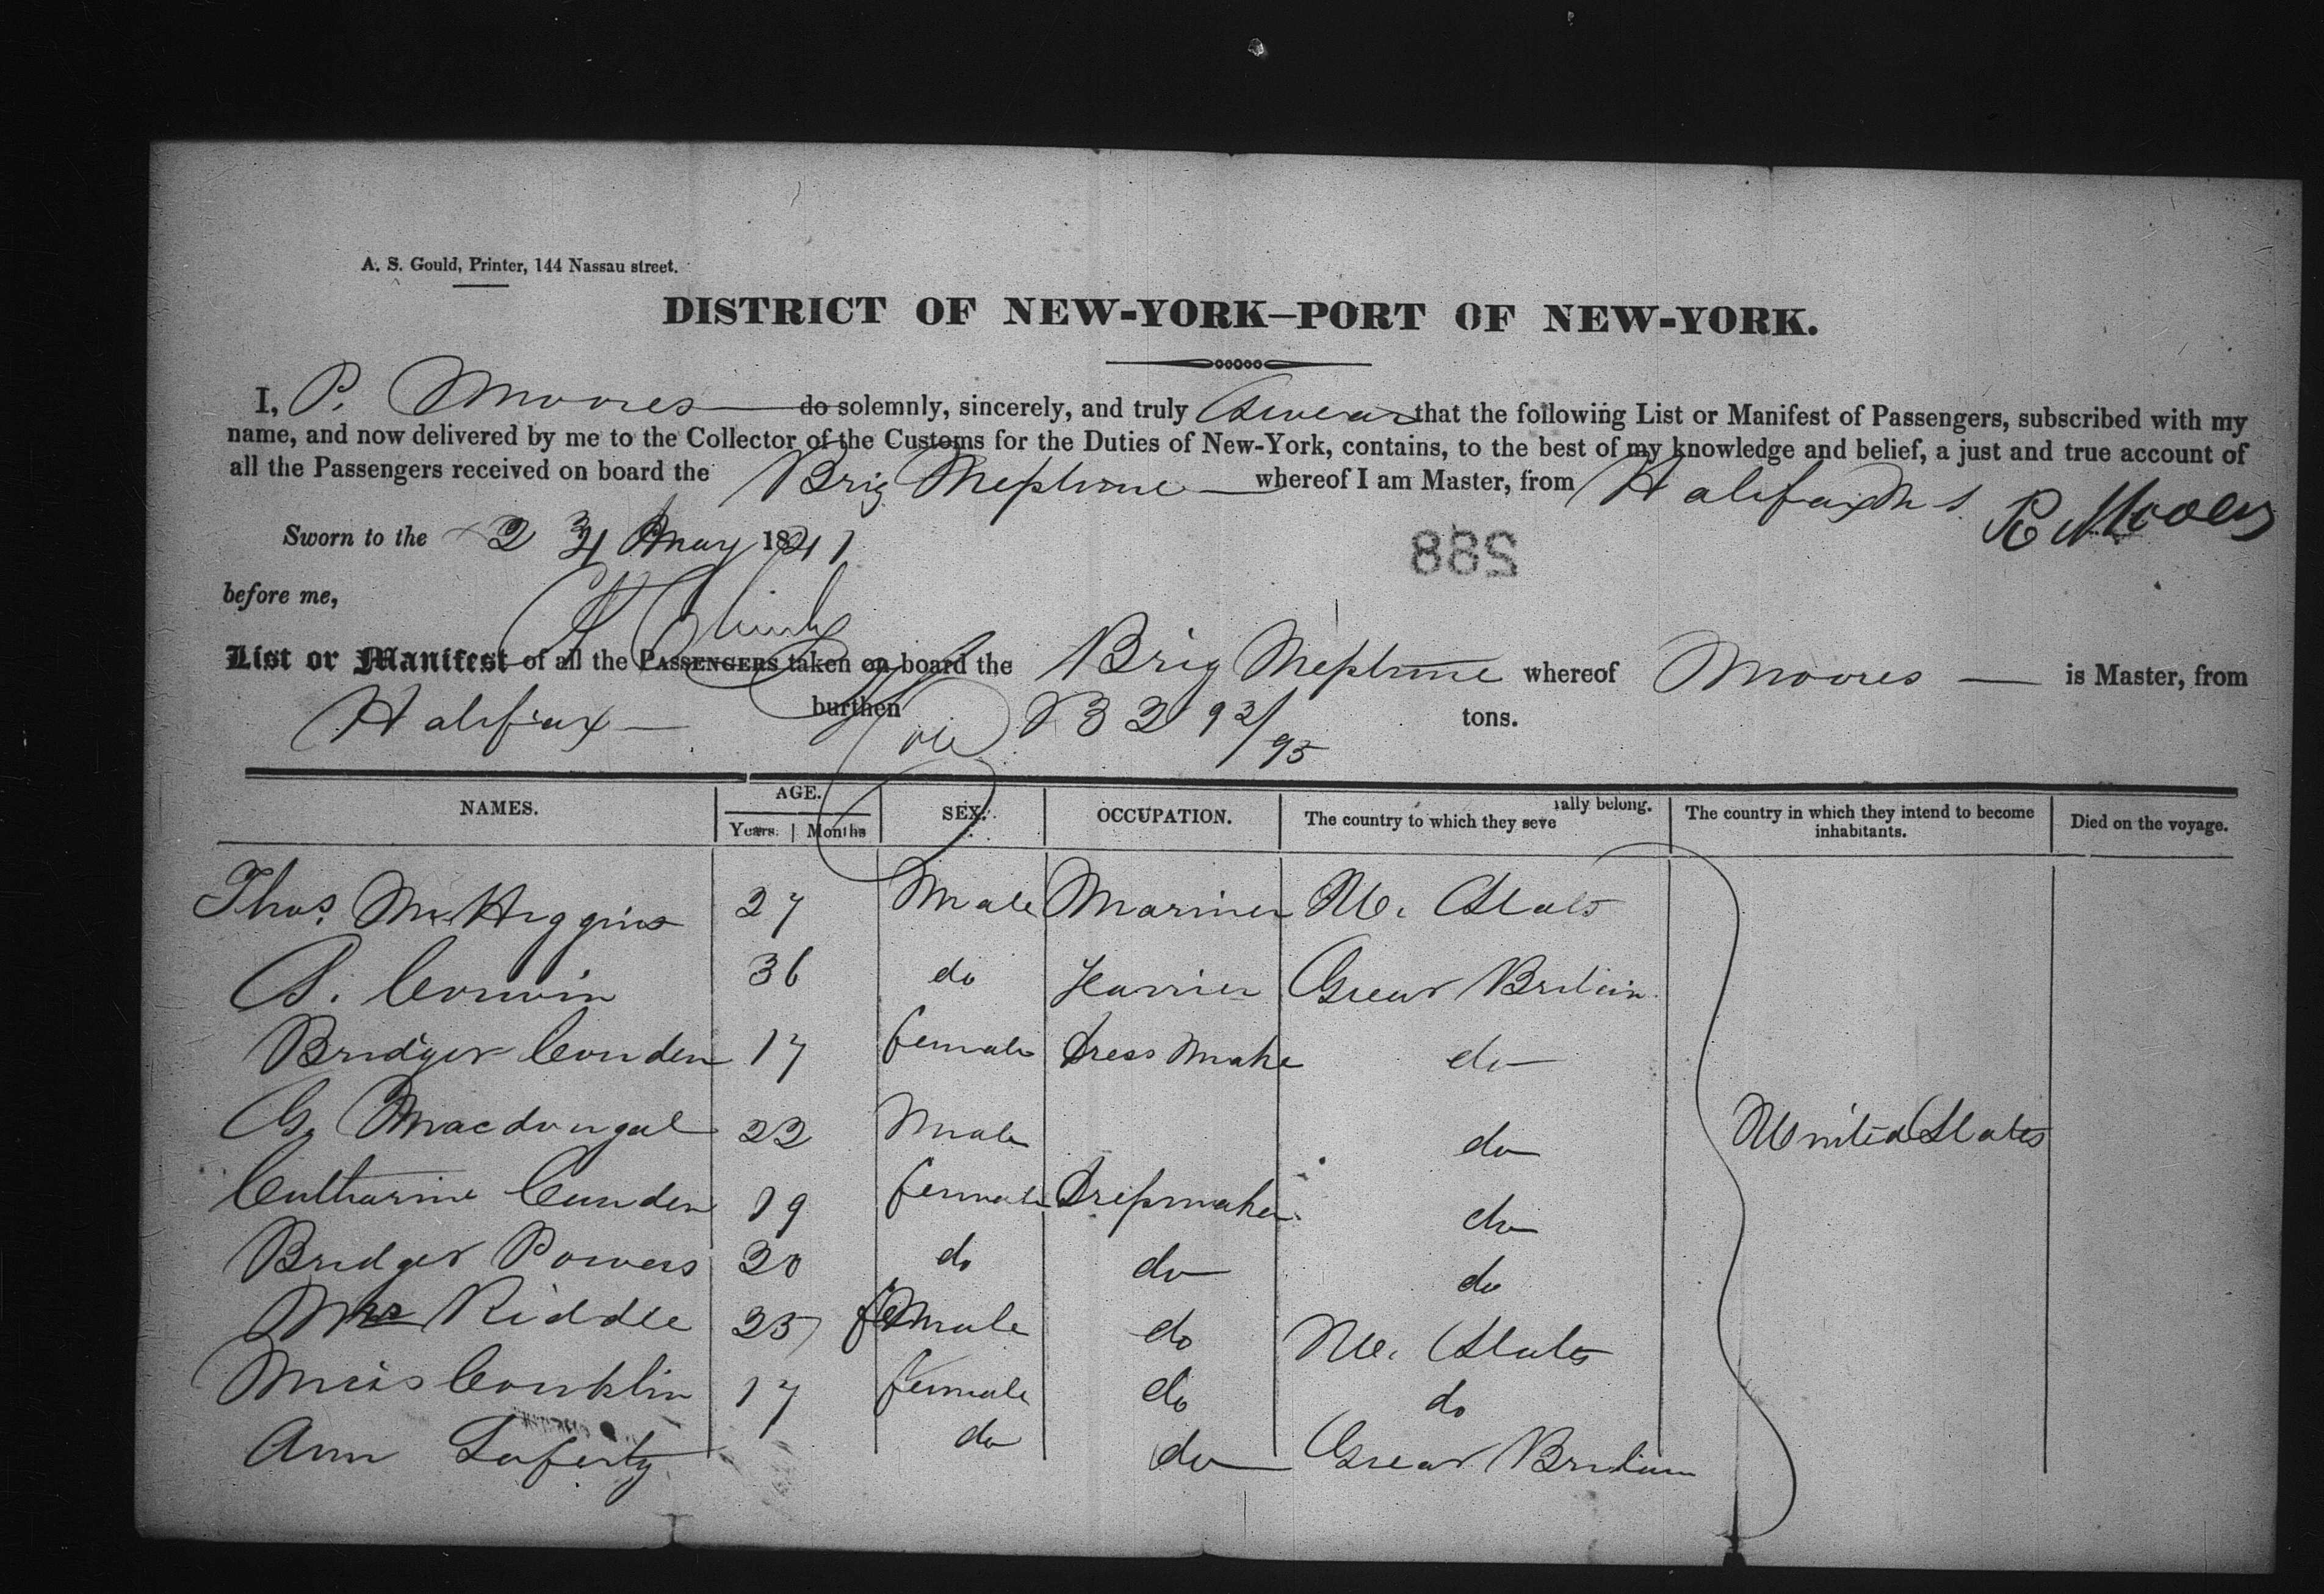 A. S. Gould, Printer, 144 Nassau street.
DISTRICT OF NEW-YORK—PORT OF NEW-YORK.
I, P. Moores do solemnly, sincerely, and truly Swear that the following List or Manifest of Passengers, subscribed with my
name, and now delivered by me to the Collector of the Customs for the Duties of New-York, contains, to the best of my knowledge and belief, a just and true account of
all the Passengers received on board the Brig Neptune whereof I am Master, from Halifax N S.
Sworn to the May 1841
588
before me,
List or Manifest of all the PASSENGERS taken on board the Brig Neptune whereof Moores is Master, from
Halifax burthen tons.
NAMES. AGE. SEX. OCCUPATION. The country to which they severally belong. The country in which they intend to become inhabitants. Died on the voyage.
Years. Months
Thos. M. Higgins 27 Male Mariner U. States
36 do Great Britain
Bridget Conden 17 female Dress Make do
G. Macdougal 22 Male do United States
Catharine Cunden 19 female Dressmaker do
Bridget Powers 20 do do do
Mrs Riddle 25 feMale do U. States
Miss Conklin 17 female do do
Ann Laferty do do Great Britain